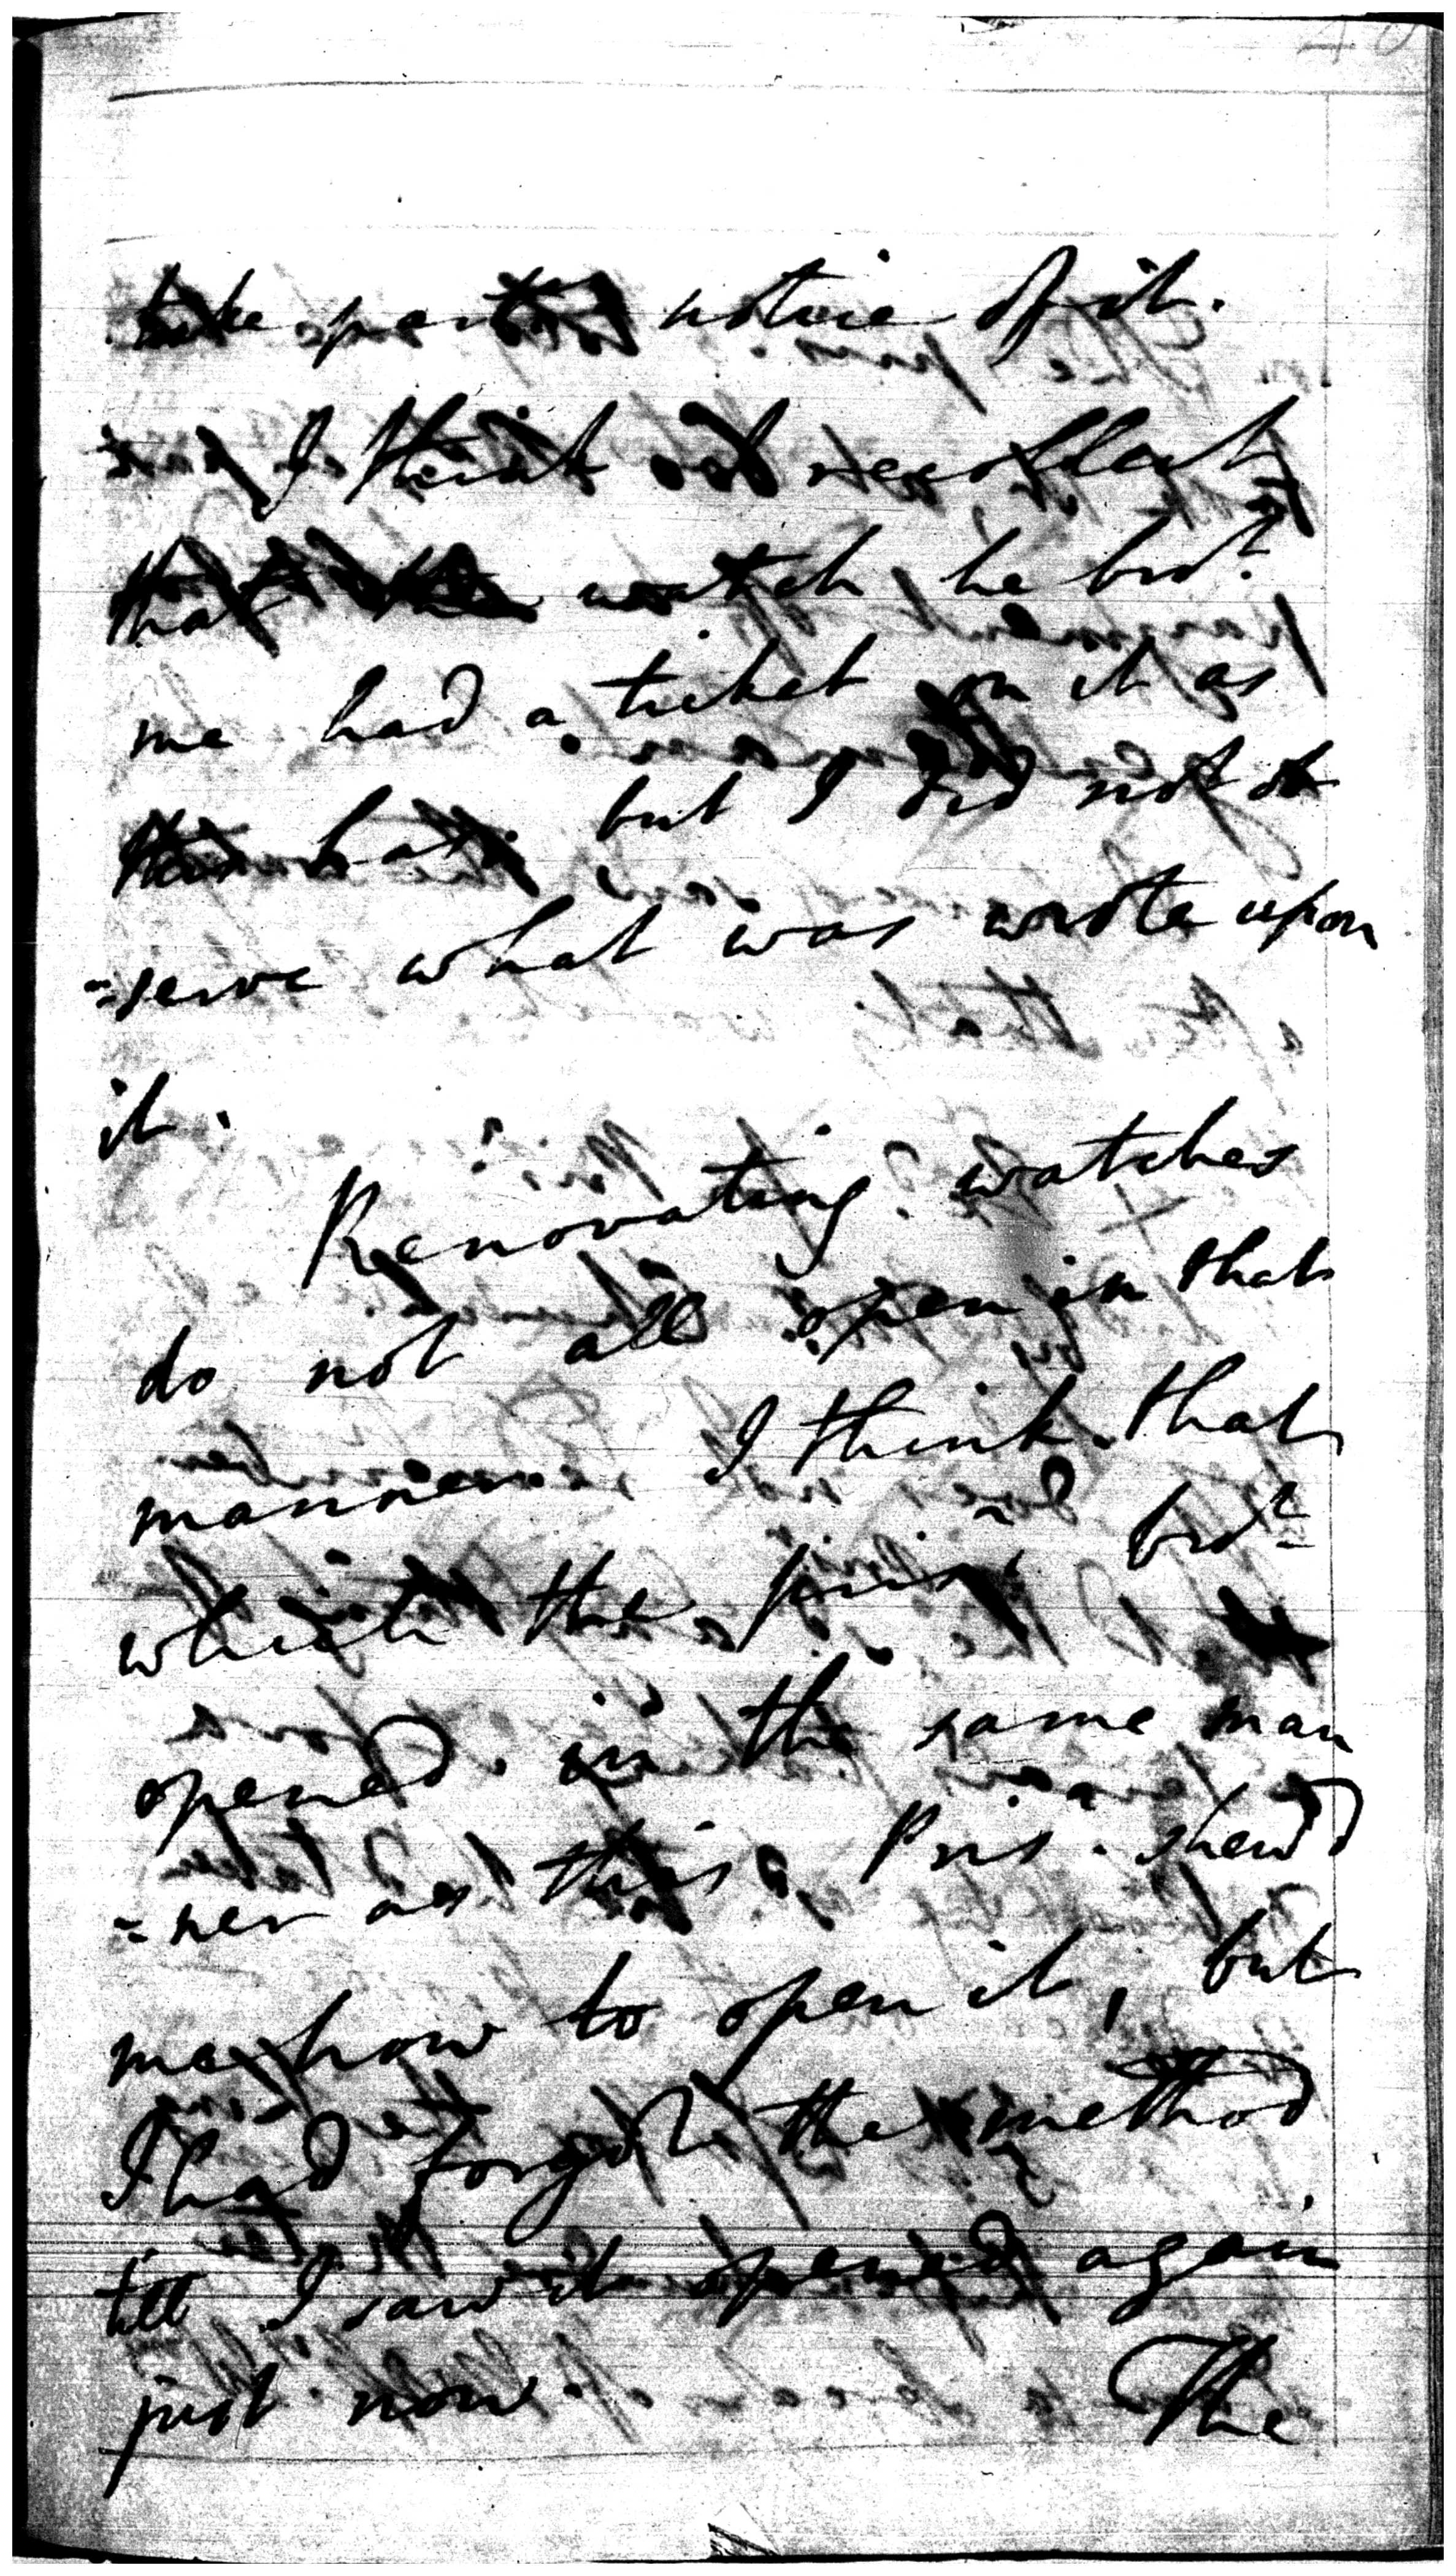 take part notice of it.
I think I recollect
that the watch he bro.t
me had a ticket on it as
this hath but I did not ob
=serve what was wrote upon
it.
Renovating watches
do not all open in that
manner. I think that
which the pris.r bro.t
opened in the same man
=ner as this. Pris.r shewd
me how to open it, but
I had forgot the method
till I saw it opened again
just now. The